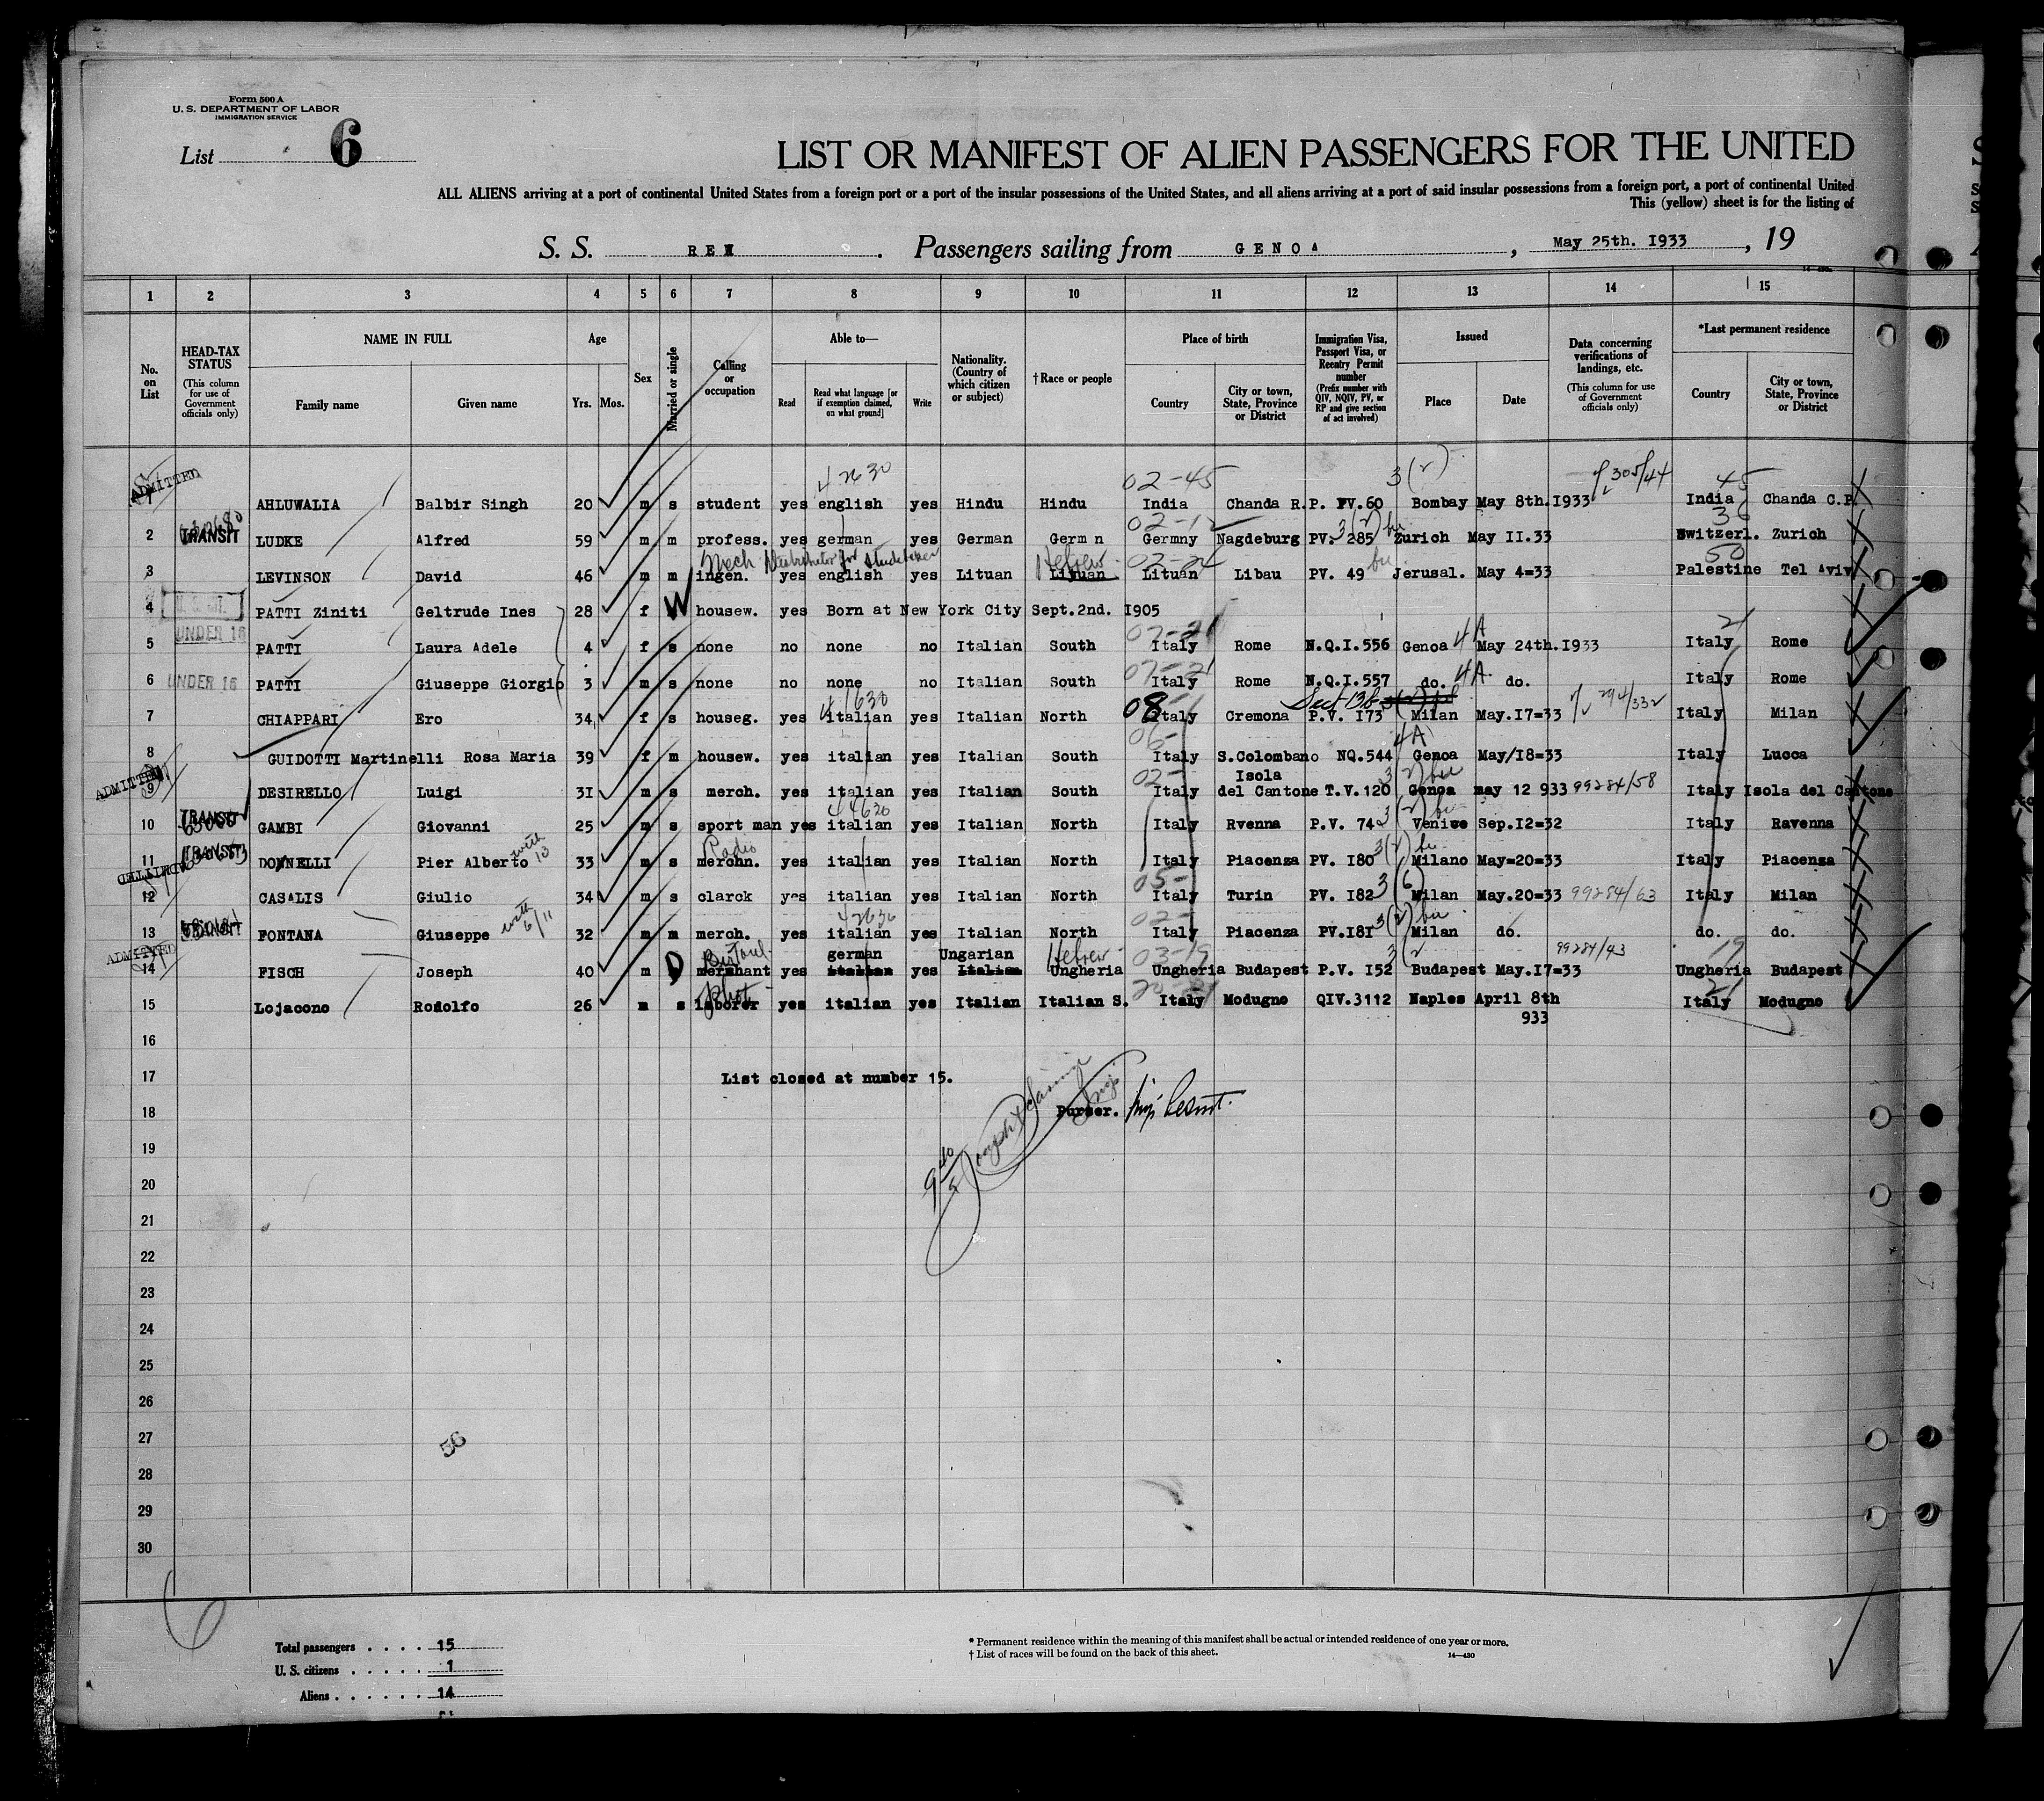 Form 500 A
U. S. DEPARTMENT OF LABOR
IMMIGRATION SERVICE
List 6
LIST OR MANIFEST OF ALIEN PASSENGERS FOR THE UNITED
ALL ALIENS arriving at a port of continental United States from a foreign port or a port of the insular possessions of the United States, and all aliens arriving at a port of said insular possessions from a foreign port, a port of continental United
This (yellow) sheet is for the listing of
S. S. REX . Passengers sailing from GENOA , May 25th. I933 , 19
1 2 3 4 5 6 7 8 9 10 11 12 13 14 15
No. on List
HEAD-TAX STATUS (This column for use of Government officials only)
NAME IN FULL
Family name Given name
Age
Yrs. Mos.
Sex
Married or single
Calling or occupation
Able to—
Read
Read what language [or if exemption claimed, on what ground]
Write
Nationality. (Country of which citizen or subject)
†Race or people
Place of birth
Country
City or town, State, Province or District
Immigration Visa, Passport Visa, or Reentry Permit number (Prefix number with QIV, NQIV, PV, or RP and give section of act involved)
Issued
Place Date
Data concerning verifications of landings, etc. (This column for use of Government officials only)
*Last permanent residence
Country
City or town, State, Province or District
ADMITTED 4 2630 02-45 3(2) 305/44 45
1 AHLUWALIA Balbir Singh 20 m s student yes english yes Hindu Hindu India Chanda R.P. PV.60 Bombay May 8th.I933 India Chanda C.P.
02-12 3(2) 36
2 TRANSIT LUDKE Alfred 59 m m profess. yes german yes German Germ n Germny Nagdeburg PV. 285 Zurich May II.33 Switzerl. Zurich
Mech Distributor for Studebaker Hebrew 02-24 50
3 LEVINSON David 46 m m ingen. yes english yes Lituan Lituan Lituan Libau PV. 49 Jerusal. May 4=33 Palestine Tel Aviv
4 PATTI Ziniti Geltrude Ines 28 f W housew. yes Born at New York City Sept.2nd. I905
UNDER 16 07-21 4A 21
5 PATTI Laura Adele 4 f s none no none no Italian South Italy Rome N.Q.I.556 Genoa May 24th.I933 Italy Rome
07-21 4A
6 UNDER 16 PATTI Giuseppe Giorgio 3 m s none no none no Italian South Italy Rome N.Q.I.557 do. do. Italy Rome
4 1630 08 Sect 13B 294/332
7 CHIAPPARI Ero 34 f s houseg. yes italian yes Italian North Italy Cremona P.V. I73 Milan May.I7=33 Italy Milan
06- 4A
8 GUIDOTTI Martinelli Rosa Maria 39 f m housew. yes italian yes Italian South Italy S.Colombano NQ.544 Genoa May/I8=33 Italy Lucca
ADMITTED 02- Isola 3(2)
9 DESIRELLO Luigi 3I m s merch. yes italian yes Italian South Italy del Cantone T.V.I20 Genoa may 12 933 99284/58 Italy Isola del Cantone
TRANSIT 4 4630 3(2)
10 GAMBI Giovanni 25 m s sport man yes italian yes Italian North Italy Rvenna P.V. 74 Venice Sep.I2=32 Italy Ravenna
TRANSIT with 13 Radio 3(2)
11 DONNELLI Pier Alberto 33 m s merchn. yes italian yes Italian North Italy Piacenza PV. I80 Milano May=20=33 Italy Piacenza
ADMITTED 05- 3(6)
12 CASALIS Giulio 34 m s clarck yes italian yes Italian North Italy Turin PV. I82 Milan May.20=33 99284/63 Italy Milan
TRANSIT with 6/11 42630 02- 3(2)
13 FONTANA Giuseppe 32 m m merch. yes italian yes Italian North Italy Piacenza PV.I8I Milan do. do. do.
ADMITTED german Ungarian Hebrew 03-19 3(2 99284/43 19
14 FISCH Joseph 40 m D merchant yes italian yes Italian Ungheria Ungheria Budapest P.V. I52 Budapest May.I7=33 Ungheria Budapest
21
15 Lojacono Rodolfo 26 m s laborer yes italian yes Italian Italian S. Italy Modugno QIV.3112 Naples April 8th Italy Modugno
933
16
17 List closed at number 15.
18 Purser.
19
20
21
22
23
24
25
26
27
56
28
29
30
6
Total passengers . . . . 15
U. S. citizens . . . . . 1
Aliens . . . . . . 14
* Permanent residence within the meaning of this manifest shall be actual or intended residence of one year or more.
† List of races will be found on the back of this sheet. 14—430